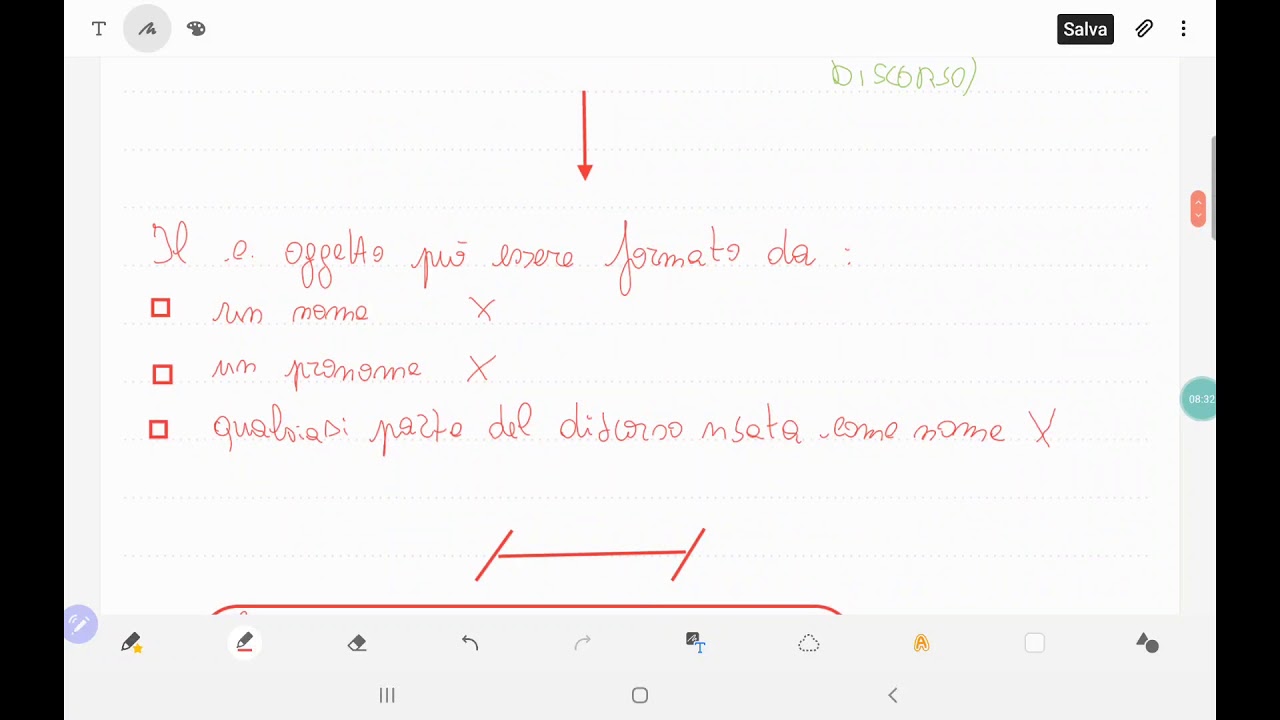 T
Salva
DISCORSO)
Il c. oggetto può essere formato da :
un nome X
un pronome X
qualsiasi parte del discorso usata come nome X
08:32
T
A